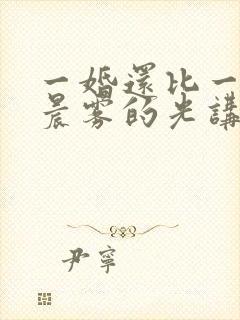 一婚還比一
晨雾的光講
尹寧